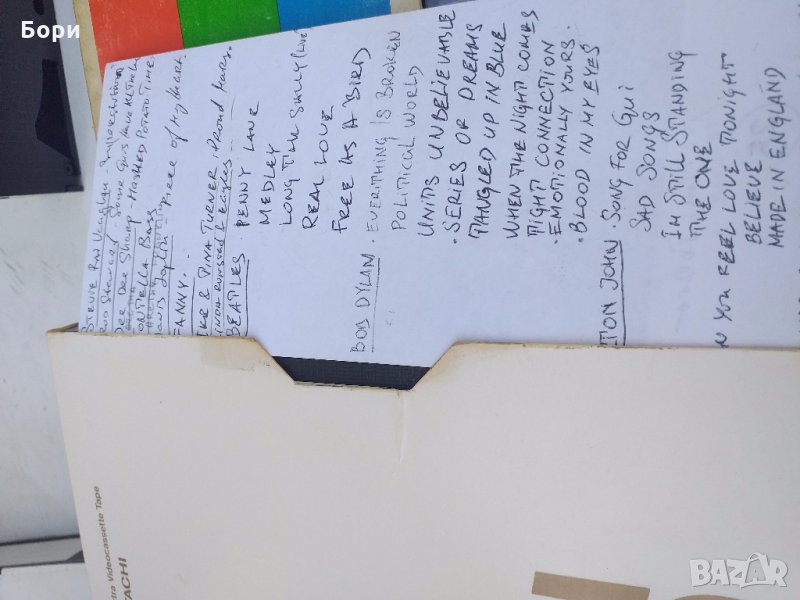 Бори
STEVIE RAY VAUGHAN -
ROD STEWART - SOME GUYS HAVE
DEE DEE SHARP - MASHED POTATO TIME
FONTELLA BASS
JANIS JOPLIN - PIECE OF MY HEART
FANNY.
IKE & TINA TURNER, PROUD MARY.
BEATLES. PENNY LANE
MEDLEY
LONG TALL SALLY (LIVE
REAL LOVE
FREE AS A BIRD
BOB DYLAN. EVERITHING IS BROKEN
POLITICAL WORLD
UNITS UNBELIEVABLE
• SERIES OR DREAMS
TANGLED UP IN BLUE
WHEN THE NIGHT COMES
TIGHT CONNECTION
• EMOTIONALLY YOURS.
• BLOOD IN MY EYES
TON JOHN. SONG FOR GUI
SAD SONGS
I'M STILL STANDING
THE ONE
N YOU FEEL LOVE TONIGHT
BELIEVE
MADE IN ENGLAND
tra Videocassette Tape
TACHI
BAZAR